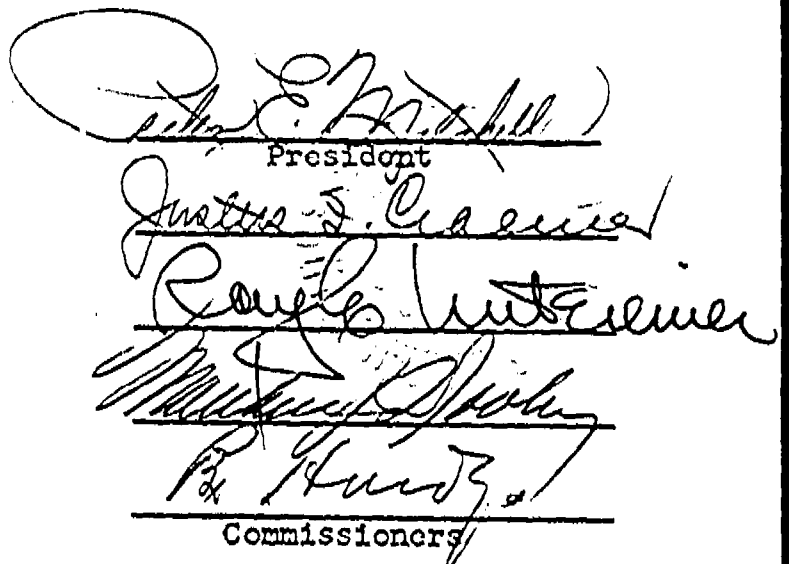 Peter E. Mitchell
President
Justus F. Craemer
Ray Untereiner
Hardy
Commissioners